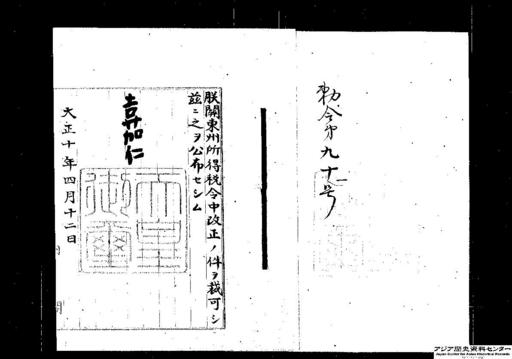 勅令第九十一号
朕關東州所得税令中改正ノ件ヲ裁可シ
茲ニ之ヲ公布セシム
嘉仁
天皇
御璽
大正十年四月十二日
アジア歴史資料センター
Japan Center for Asian Historical Records